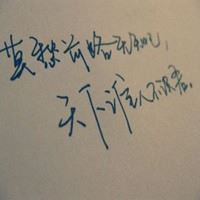 莫愁前路无知己，
天下谁人不识君。